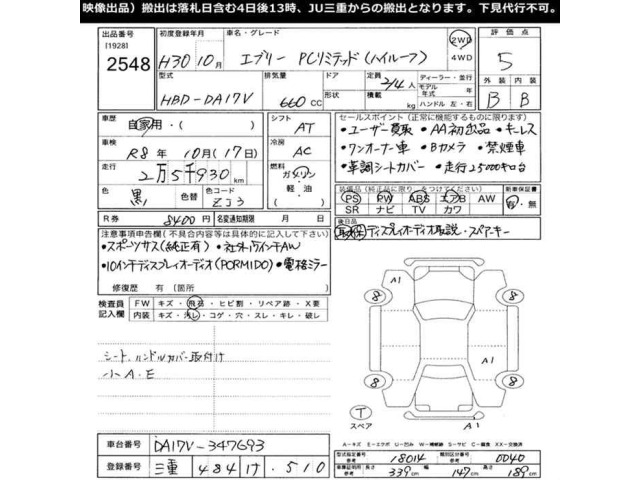 映像出品）搬出は落札日含む4日後13時、JU三重からの搬出となります。下見代行不可。
出品番号 初度登録年月 車名・グレード 評価点
[1928] 2548 H30 10月 エブリー PCリミテッド(ハイルーフ) 2WD 4WD 5
型式 排気量 ドア 定員 2/4人 ディーラー・並行 外装 内装
形状 積載 kg モデル年式 年
HBD-DA17V 660 CC ハンドル 左・右 B B
車歴 自家用・( ) シフト AT
セールスポイント（正常に機能するものに限ります）
・ユーザー買取 ・AA初出品 ・キーレス
車検 R8年 10月(17日) 冷房 AC
・ワンオーナー車 ・Bカメラ ・禁煙車
走行 2万5千930km 燃料 ガソリン・軽油・( )
・革調シートカバー ・走行25000キロ台
色 黒 色コード ZJ3
装備品（純正品に限り○をつけてください） 新車保証書
PS PW ABS エアB AW 有・無
SR ナビ TV カワ
R券 8400円 名変通知期限 月 日
後日品
取保 ディスプレイオーディオ取説・スペアキー
注意事項申告欄（不具合内容等は具体的に記入して下さい）
・スポーツサス(純正有) ・社外ウインチAW
・10インチディスプレイオーディオ(PORMIDO) ・電格ミラー
修復歴 有（箇所
検査員記入欄 FW キズ・飛石・ヒビ割・リペア跡・X要
内装 キズ・汚レ・コゲ・穴・スレ・キレ・破レ
シート、ハンドルカバー取付け
小A・E
A1
8 8
A1
8 8
T スペア
A1
A－キズ E－エクボ U－凹み W－補修跡 S－サビ C－腐食 XX－交換済
車台番号 DA17V-347693
型式指定番号 参考 18014 類別区分番号 参考 0040
登録番号 三重 484 け ・510
車庫証明用 参考 長さ 339cm 幅 147cm 高さ 189cm